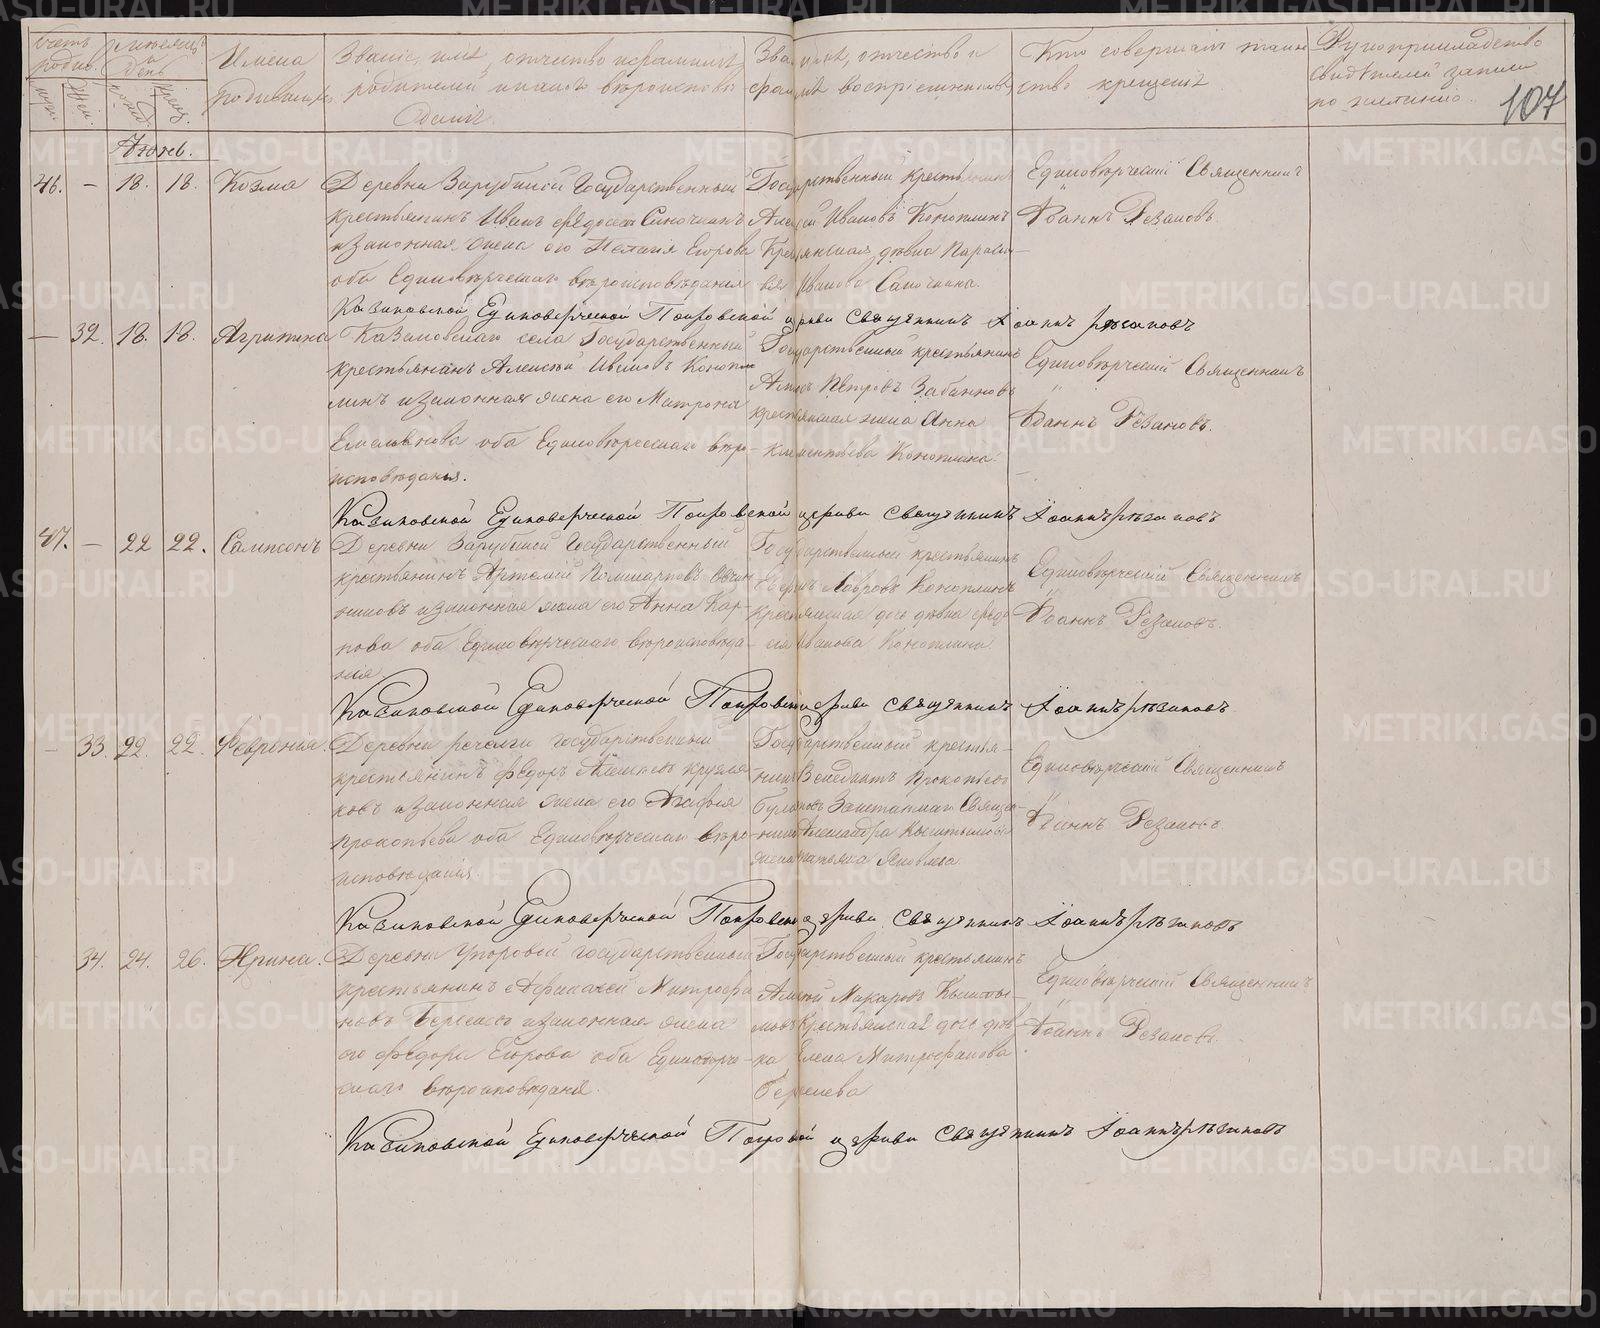 Счетъ родив.
Мѣсяцъ и день
Имена родившихся
Званіе, имя, отчество и фамилія
родителей и какого вѣроисповѣ
данія.
Званіе, имя, отчество и
фамилія воспріемниковъ
Кто совершалъ таин
ство крещенія
Рукоприкладство
свидѣтелей записи
по желанію.
107
муж.
жен.
рожд.
крещ.
Іюнь.
46. – 18. 18. Козма
Деревни Зарубиной Государственный
крестьянинъ Иванъ
и законная жена его Пелагія Егорова
оба Единовѣрческаго вѣроисповѣданія
Государственный крестьянинъ
Алексѣй Ивановъ Коноплинъ
Крестьянская дѣвка Параске-
вія Иванова
Единовѣрческій Священникъ
Іоаннъ Рѣзановъ
Казиковской Единоверческой Покровской церкви священникъ Іоаннъ Рѣзановъ
– 32. 18. 18. Агрипина
села Государственный
крестьянинъ Алексѣй Ивановъ Коноп
линъ и законная жена его Матрона
Емельянова оба Единовѣрческаго вѣро-
исповѣданія.
Государственный крестьянинъ
Петровъ
крестьянская жена Анна
Климентьева Коноплина.
Единовѣрческій Священникъ
Іоаннъ Рѣзановъ.
Казиковской Единоверческой Покровской церкви священникъ Іоаннъ Рѣзановъ
47. – 22 22. Сампсонъ
Деревни Зарубиной Государственный
крестьянинъ Артемій Поликарповъ Овчин
никовъ и законная жена его Анна Кар-
пова оба Единовѣрческаго вѣроисповѣда
нія
Государственный крестьянинъ
Лавровъ Коноплинъ
крестьянская дочь дѣвка Ѳедо-
сія Иванова Коноплина
Единовѣрческій Священникъ
Іоаннъ Рѣзановъ.
Казиковской Единоверческой Покровской церкви священникъ Іоаннъ Рѣзановъ
– 33. 22. 22. Февронія.
Деревни Речелги Государственный
крестьянинъ Федоръ Кругля
ковъ и законная жена его Агафья
Прокопьева оба Единовѣрческаго вѣро-
исповѣданія.
Государственный крестья-
нинъ Венедиктъ Прокопьевъ
Заштатнаго Священ-
ника Александра Кыштымова
жена Татьяна Яковлева
Единовѣрческій Священникъ
Іоаннъ Рѣзановъ.
Казиковской Единоверческой Покровской церкви священникъ Іоаннъ Рѣзановъ
34. 24. 26. Ирина.
Деревни Упоровой Государственный
крестьянинъ Митрофа
новъ и законная жена
его Федора Егорова оба Единовѣрче-
скаго вѣроисповѣданія.
Государственный крестьянинъ
Алексѣй Макаровъ Кышты-
мовъ Крестьянская дочь дѣв-
ка Елена Митрофанова
Единовѣрческій Священникъ
Іоаннъ Рѣзановъ.
Казиковской Единоверческой Покровской церкви священникъ Іоаннъ Рѣзановъ
METRIKI.GASO-URAL.RU